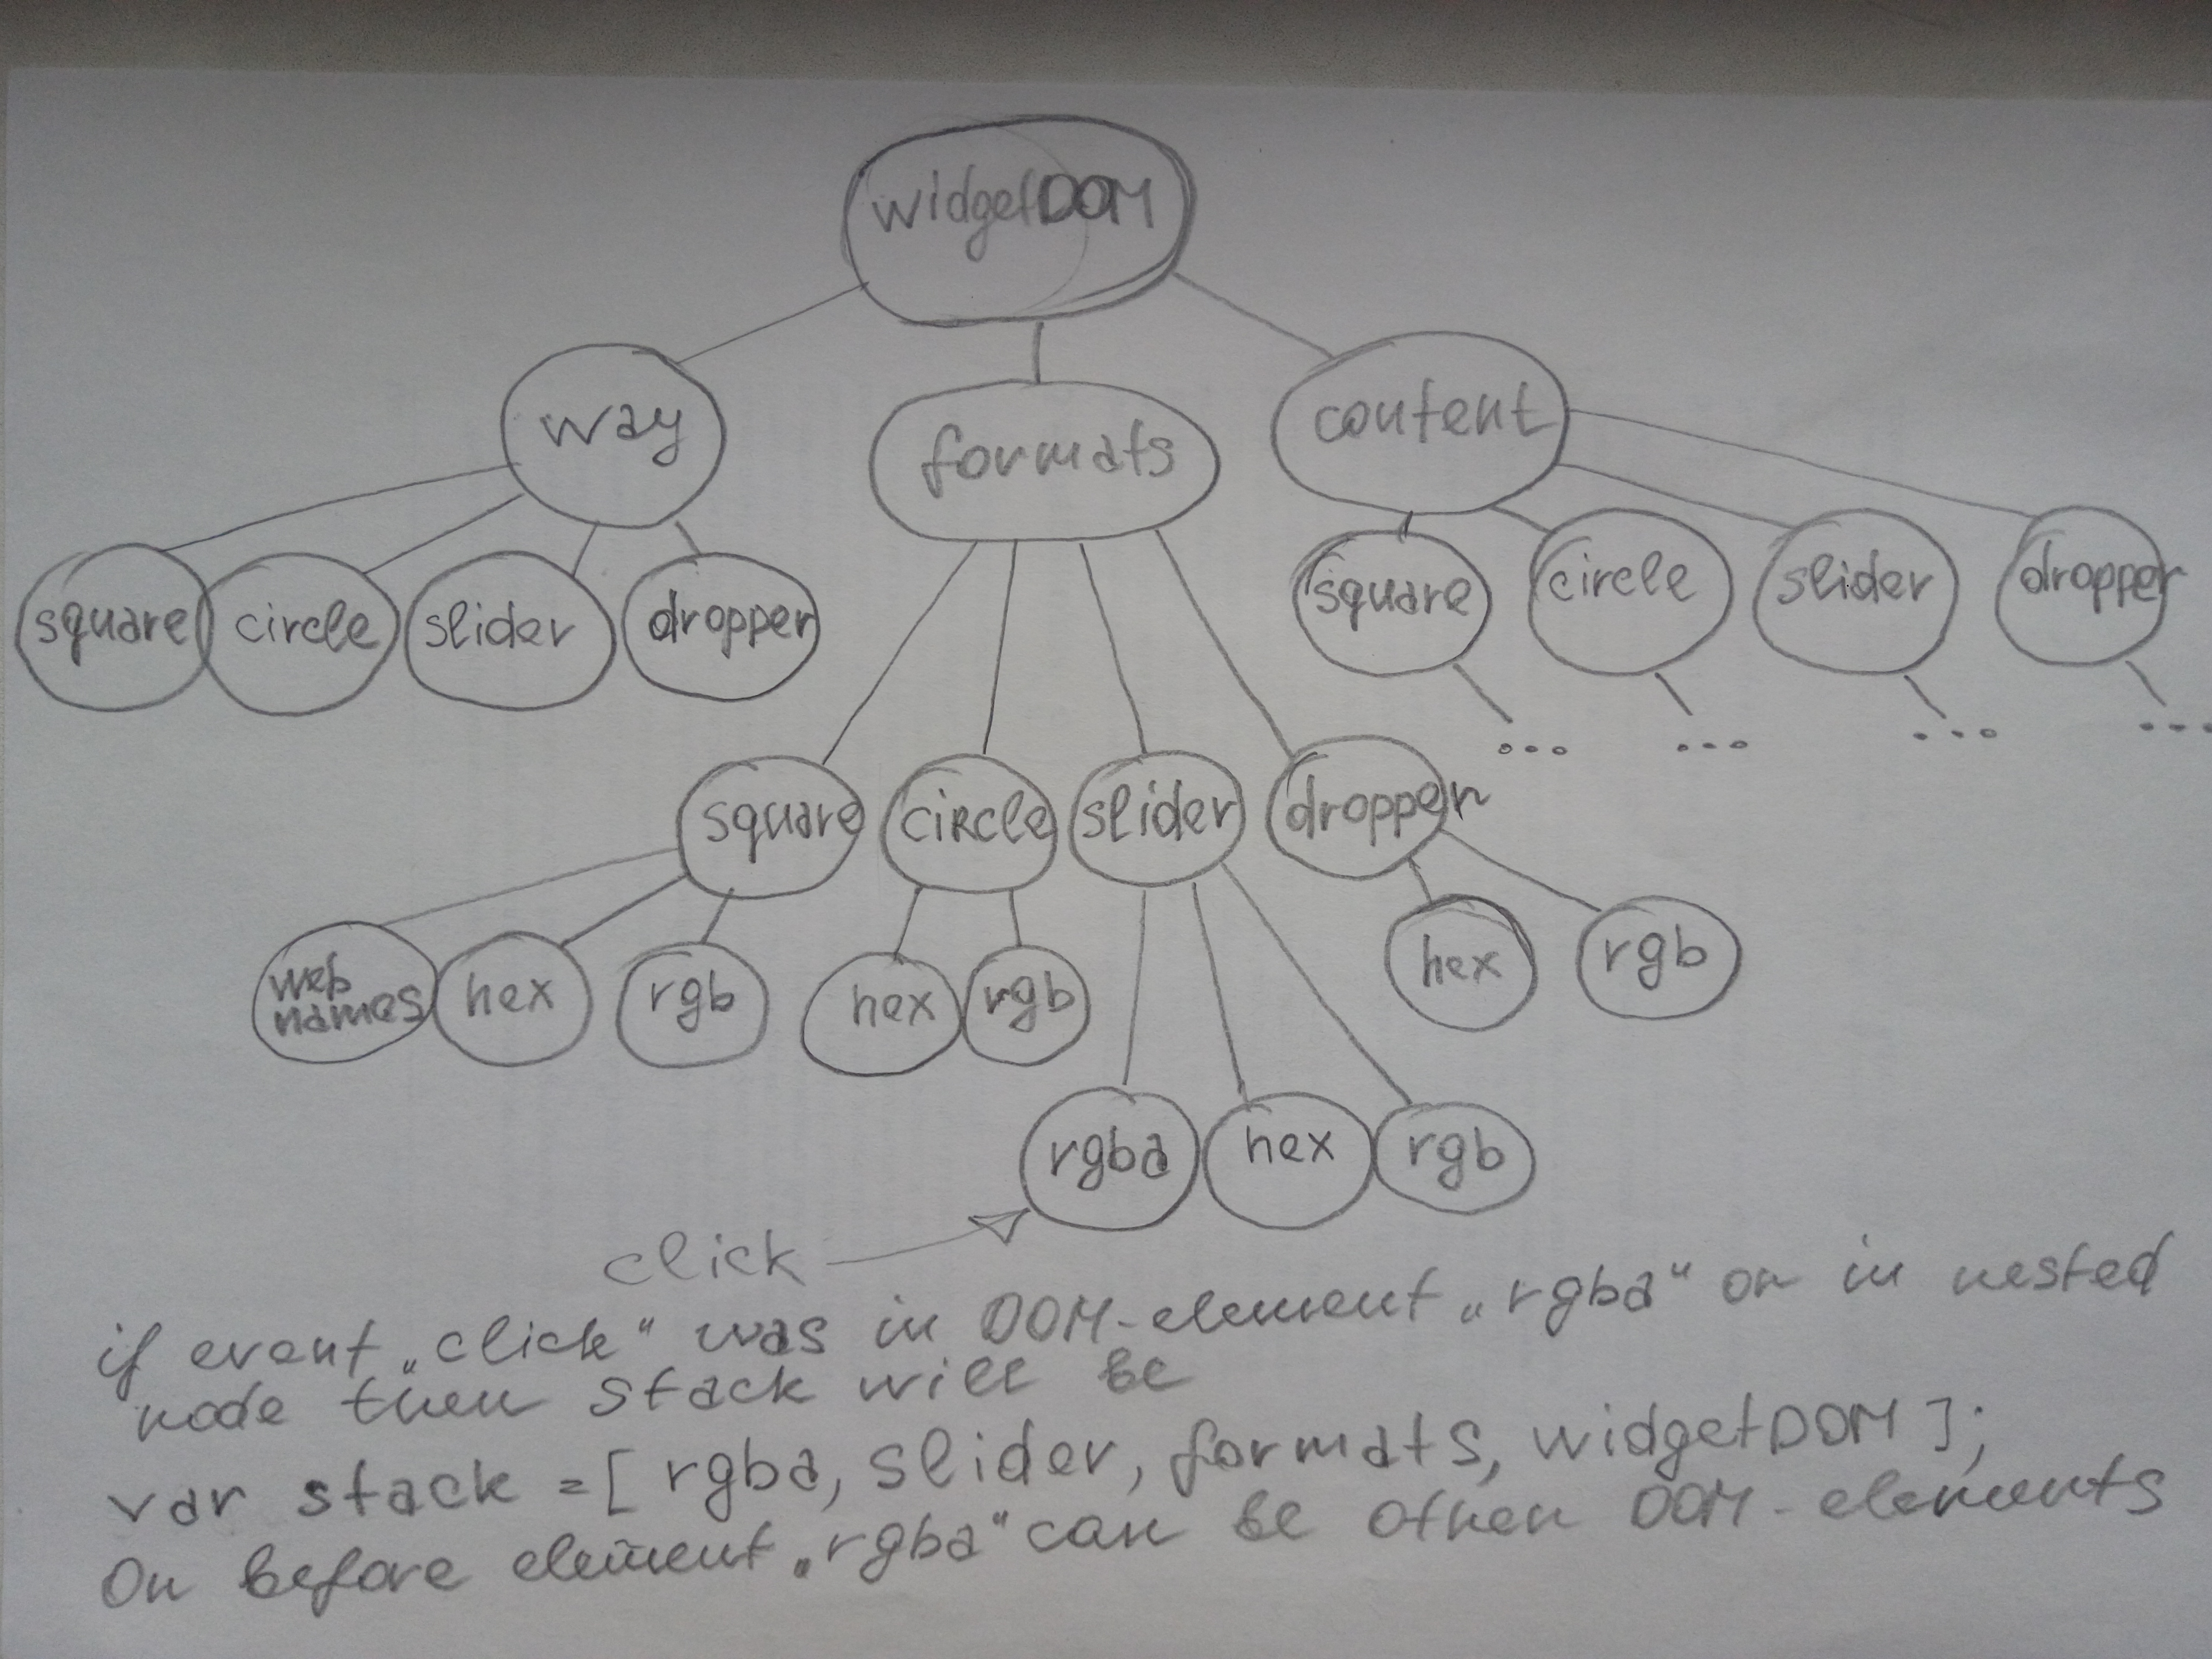 widgetDOM
way
formats
content
square circle slider dropper
square circle slider dropper
... ... ... ...
square circle slider dropper
web
names
hex rgb
hex rgb
hex rgb
rgba hex rgb
click
if event „click“ was in DOM-element „rgba“ or in nested
node then stack will be
var stack = [ rgba, slider, formats, widgetDOM ];
Or before element „rgba“ can be other DOM-elements